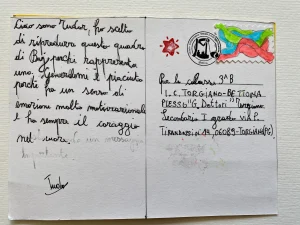 Ciao sono Tudor, ho scelto
di riprodurre questo quadro
di perchè rappresenta
uno è piaciuto
perchè ha un senso di
emozione molto motivazionale
e ha sempre il coraggio
nel cuore.
Tudor
Per la classe 3ªB
I.C. TORGIANO-BETTONA
PLESSO "G. Dottori" Torgiano
Secondaria I grado via P.
TIRADOSSI N 14, 06089-TORGIANO(PG)